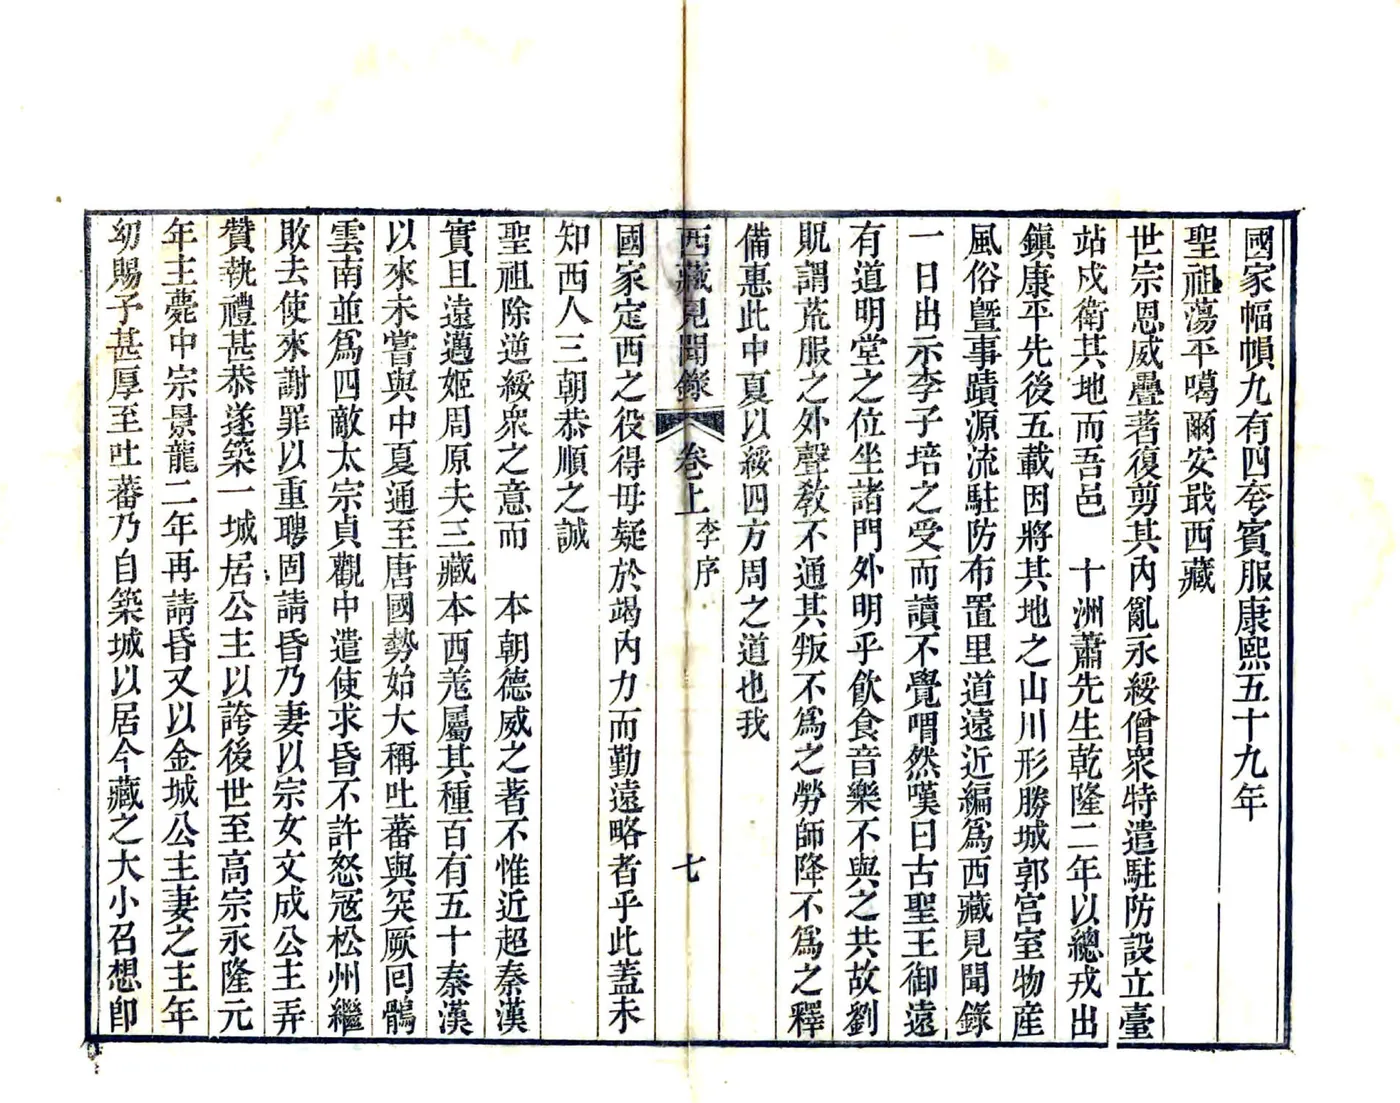 國家幅幀九有四夸賓服康熙五十九年
聖祖蕩平噶爾安戢西藏
世宗恩威疊著復剪其內亂永綏僧衆特遣駐防設立臺
站戍衛其地而吾邑　十洲蕭先生乾隆二年以總戎出
鎮康平先後五載因將其地之山川形勝城郭宮室物産
風俗曁事蹟源流駐防布置里道遠近編爲西藏見聞錄
一日出示李子培之受而讀不覺喟然嘆曰古聖王御遠
有道明堂之位坐諸門外明乎飲食音樂不與之共故劉
貺謂荒服之外聲敎不通其叛不爲之勞師降不爲之釋
備惠此中夏以綏四方周之道也我
西藏見聞錄　卷上　李序　七
國家定西之役得毋疑於竭內力而勤遠略者乎此蓋未
知西人三朝恭順之誠
聖祖除逆綏衆之意而　本朝德威之著不惟近超秦漢
實且遠邁姬周原夫三藏本西羗屬其種百有五十秦漢
以來未嘗與中夏通至唐國勢始大稱吐蕃與突厥囘鶻
雲南並爲四敵太宗貞觀中遣使求昏不許怒冦松州繼
敗去使來謝罪以重聘固請昏乃妻以宗女文成公主弄
贊執禮甚恭遂築一城居公主以誇後世至高宗永隆元
年主薨中宗景龍二年再請昏又以金城公主妻之主年
幼賜予甚厚至吐蕃乃自築城以居今藏之大小召想卽